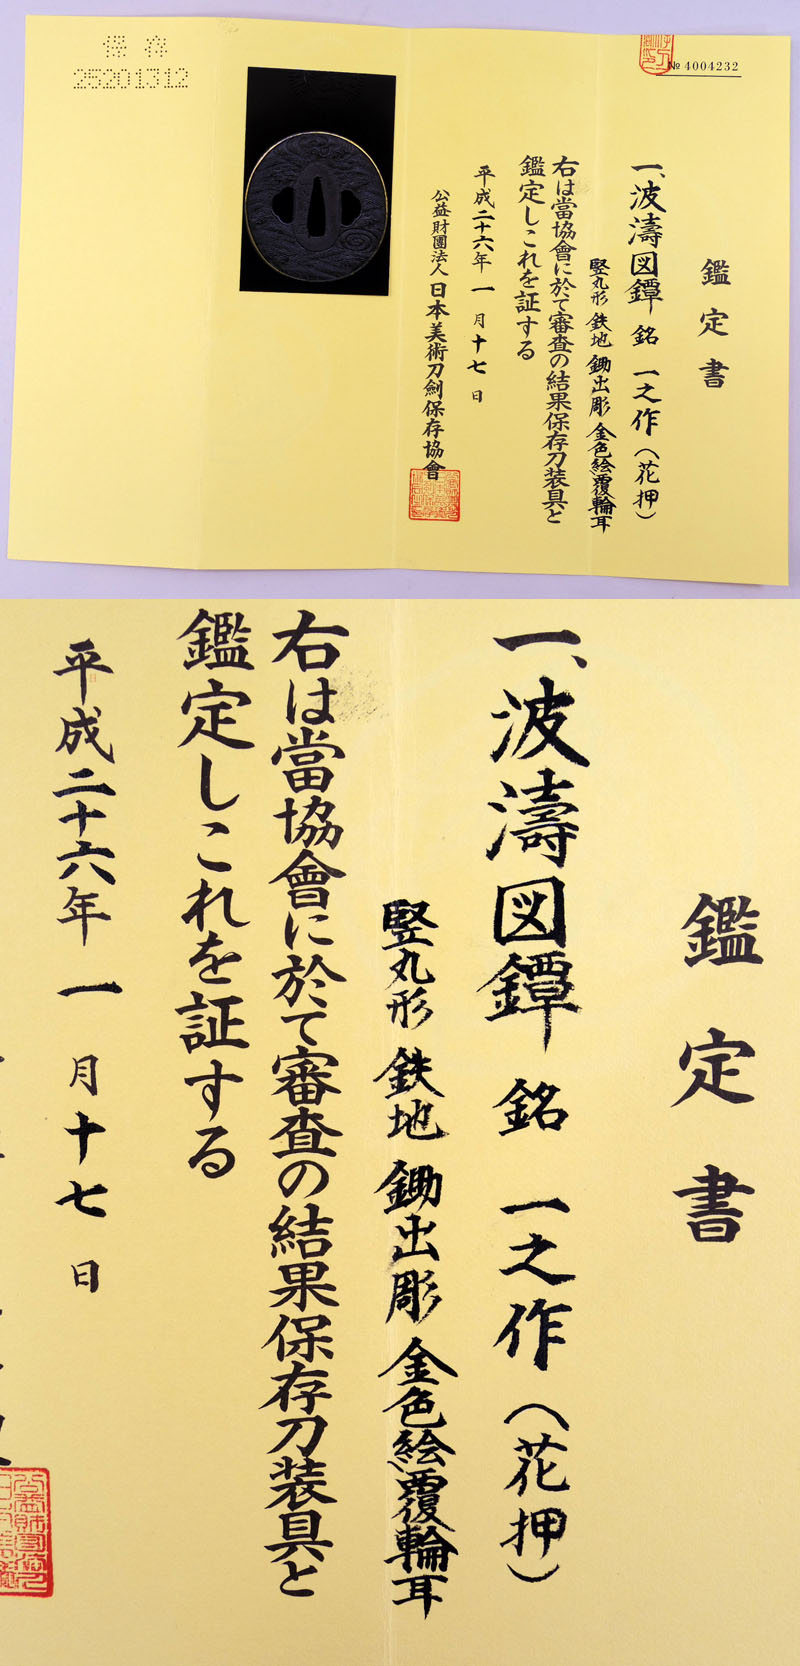 保存
25201312
№ 4004232
鑑定書
一、波濤図鐔 銘 一之作（花押）
竪丸形 鉄地 鋤出彫 金色絵覆輪耳
右は當協會に於て審査の結果保存刀装具と
鑑定しこれを証する
平成二十六年一月十七日
公益財團法人 日本美術刀劍保存協會
鑑定書
一、波濤図鐔 銘 一之作（花押）
竪丸形 鉄地 鋤出彫 金色絵覆輪耳
右は當協會に於て審査の結果保存刀装具と
鑑定しこれを証する
平成二十六年一月十七日